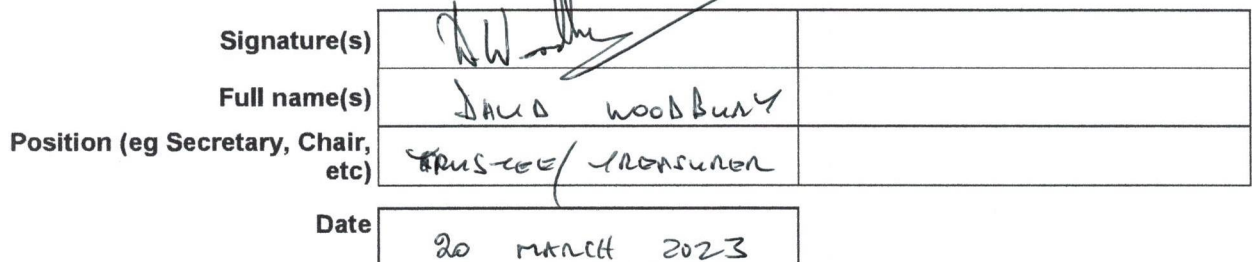 Signature(s)
Full name(s) DAVID WOODBURY
Position (eg Secretary, Chair,
etc) TRUSTEE/ TREASURER
Date 20 MARCH 2023